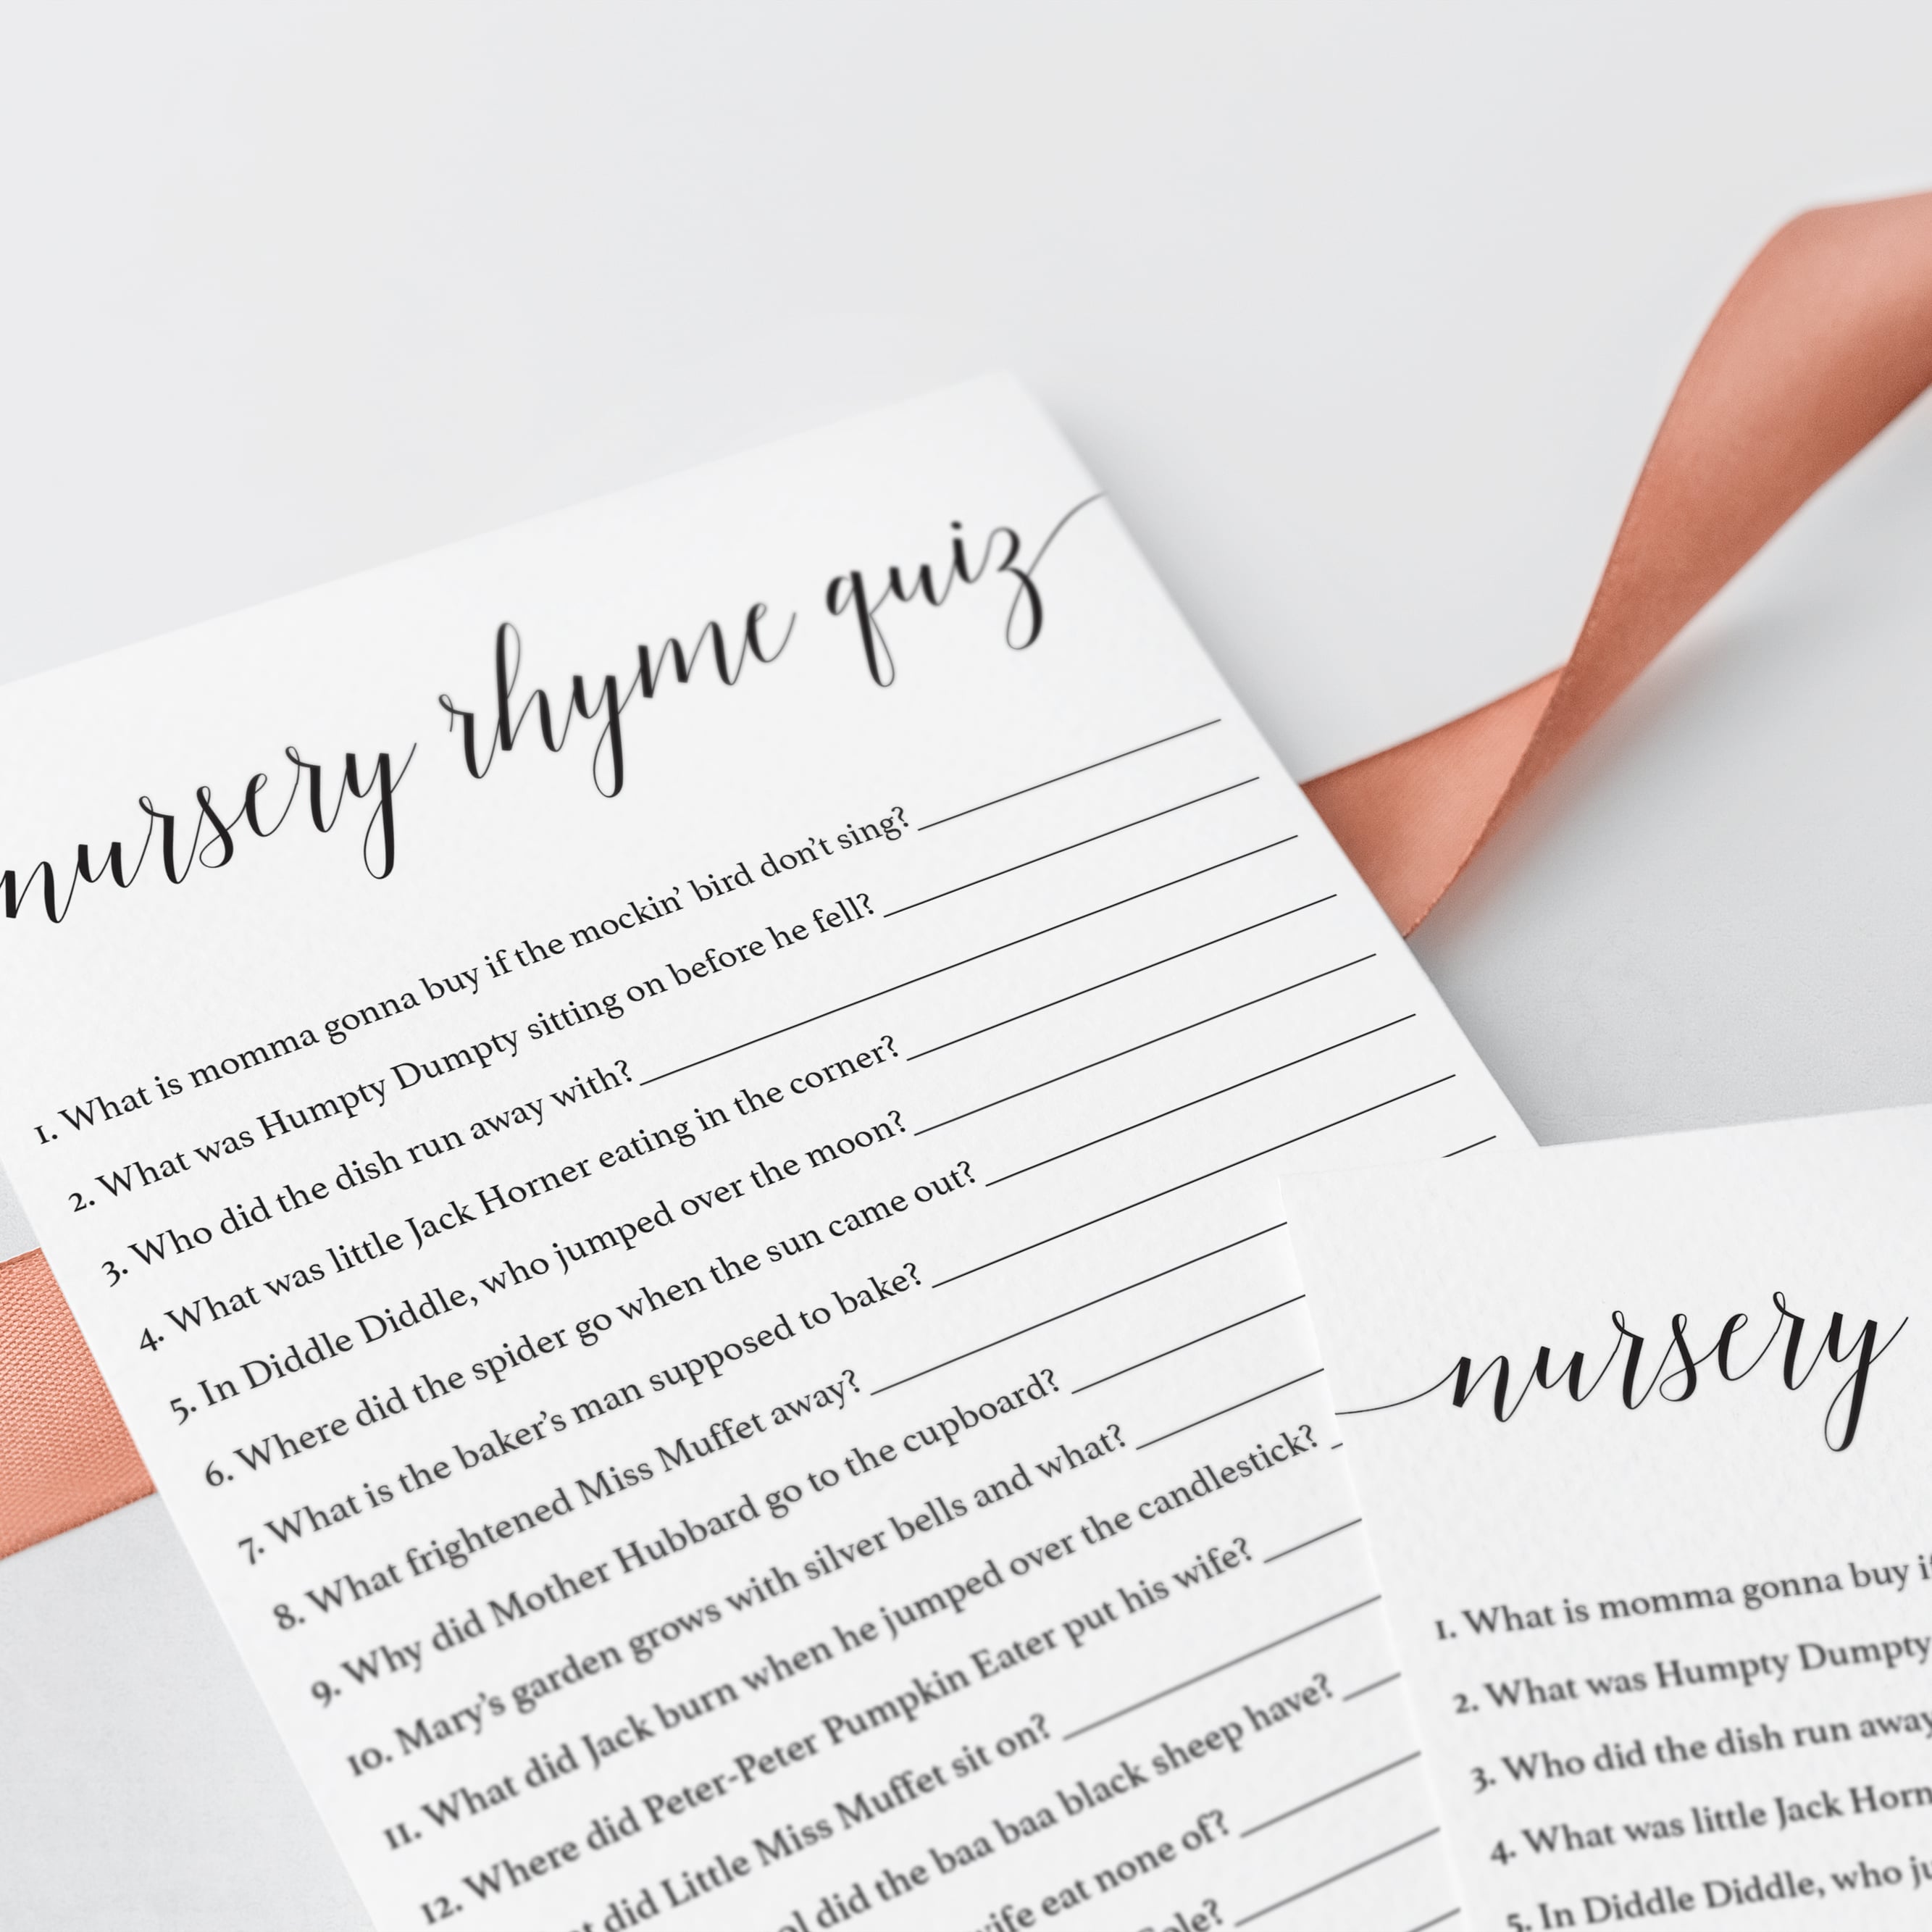 nursery rhyme quiz
1. What is momma gonna buy if the mockin' bird don't sing?
2. What was Humpty Dumpty sitting on before he fell?
3. Who did the dish run away with?
4. What was little Jack Horner eating in the corner?
5. In Diddle Diddle, who jumped over the moon?
6. Where did the spider go when the sun came out?
7. What is the baker's man supposed to bake?
8. What frightened Miss Muffet away?
9. Why did Mother Hubbard go to the cupboard?
10. Mary's garden grows with silver bells and what?
11. What did Jack burn when he jumped over the candlestick?
12. Where did Peter-Peter Pumpkin Eater put his wife?
did Little Miss Muffet sit on?
did the baa baa black sheep have?
eat none of?
nursery
1. What is momma gonna buy
2. What was Humpty Dumpty
3. Who did the dish run away
4. What was little Jack
5. In Diddle Diddle, who